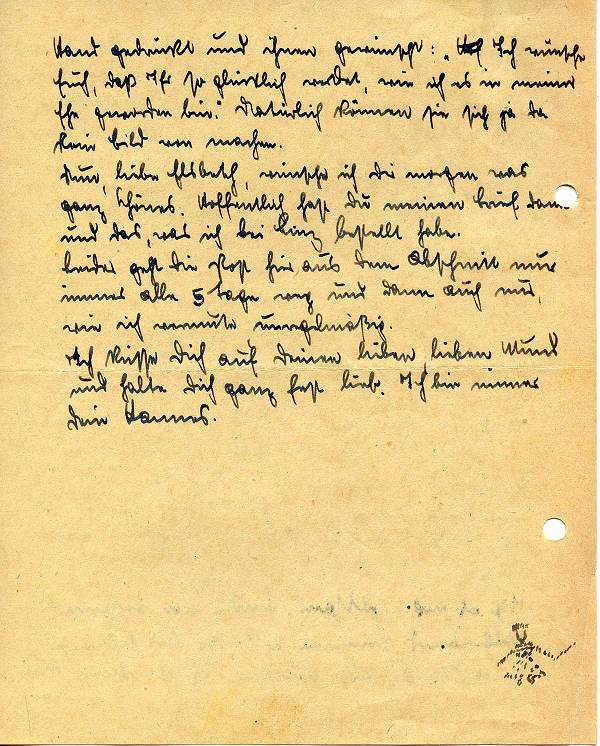 Hand gedrückt und ihnen gewünscht: „Ich wünsche
Euch, daß Ihr so glücklich werdet, wie ich es in meiner
Ehe geworden bin.“ Natürlich können sie sich ja da
kein Bild von machen.
Nun, liebe Elsbeth, wünsche ich Dir morgen was
ganz Schönes. Hoffentlich hast Du meinen Brief dann
und das, was ich bei Linz bestellt habe.
Leider geht die Post hier aus dem Abschnitt nur
immer alle 5 Tage weg und dann auch nur,
wie ich vermute unregelmäßig.
Ich küsse Dich auf Deinen lieben, lieben Mund
und halte Dich ganz fest lieb. Ich bin immer
Dein Hannes.